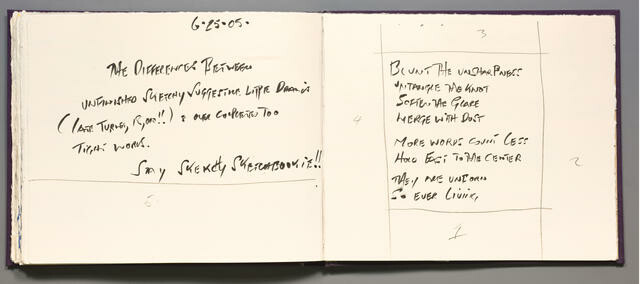 6-25-05.
The Differences Between
unfinished sketchy suggestive little
(Late Turner, !!) & over completed too
Tight works.
Stay Sketchy Sketchbookie!!
5
3
Blunt the unsharpness
untangle the knot
Soften the Glare
Merge with Dust
4
More words count less
Hold Fast to the center
2
They are unborn
So ever Living
1